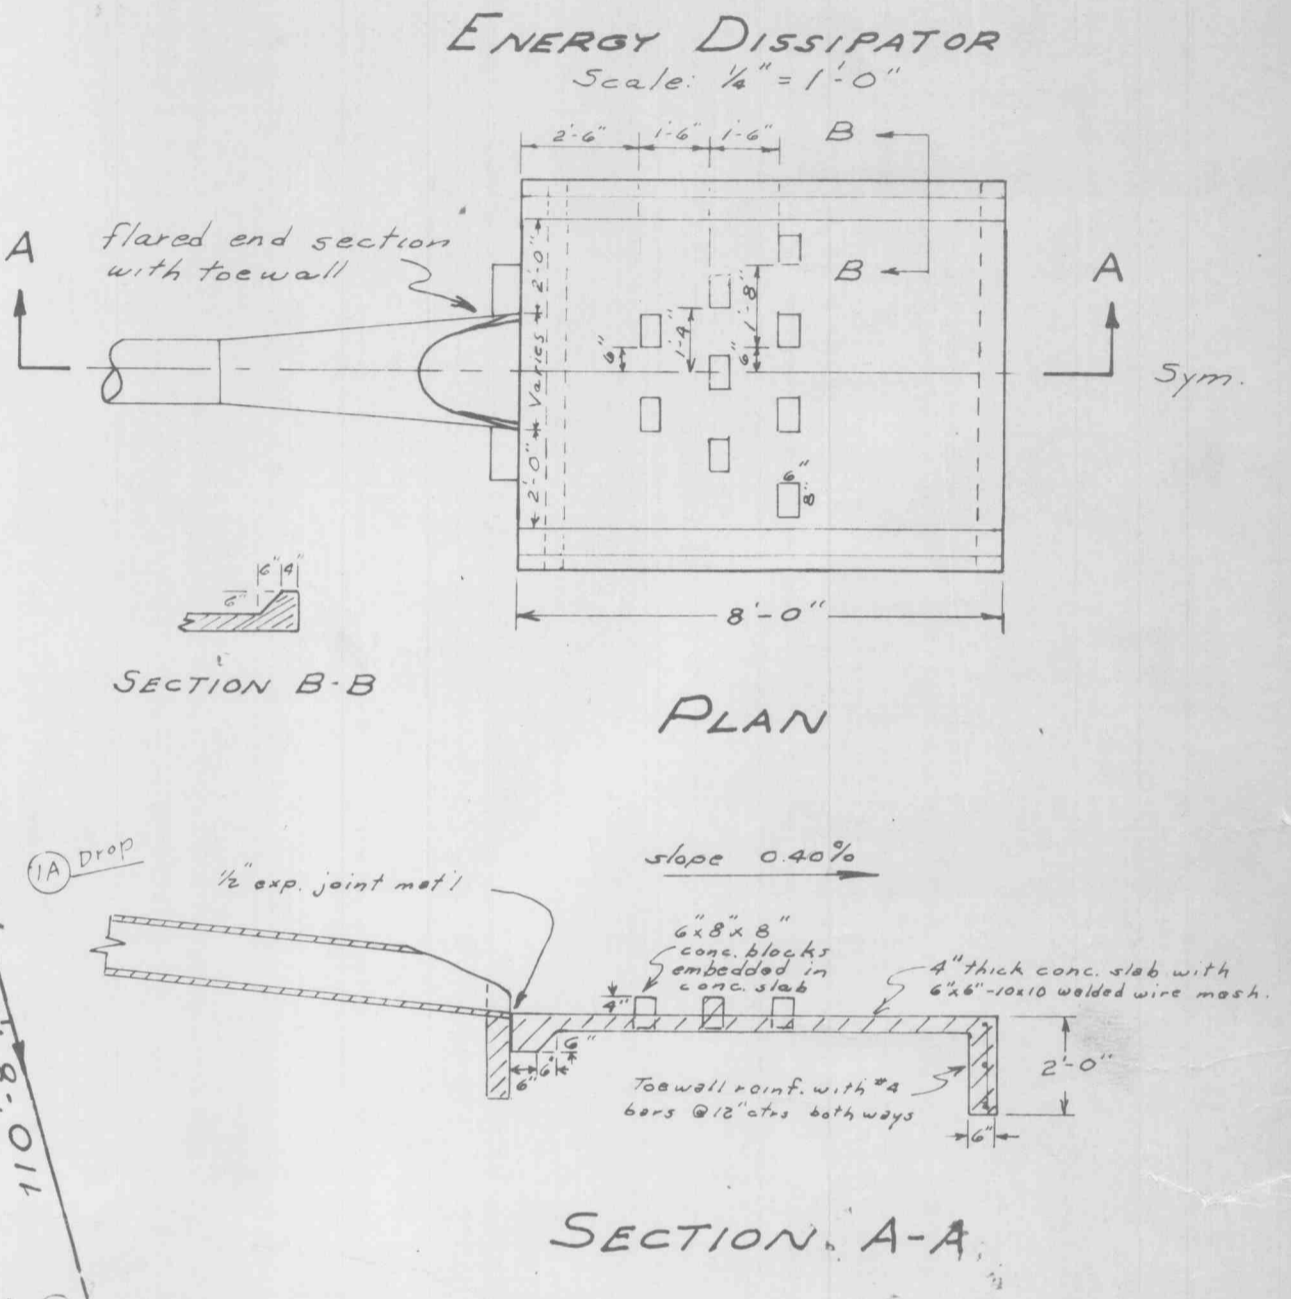 ENERGY DISSIPATOR
Scale: 1/4" = 1'-0"
2'-6" 1'-6" 1'-6" B
A
flared end section
with toewall
B
A
2'-0"
1'-8"
1'-4"
6"
6"
Varies
Sym.
2'-0"
6"
8"
6" 4"
6"
8'-0"
SECTION B-B
PLAN
1A Drop
1/2" exp. joint mat'l
slope 0.40%
6"x8"x8"
conc. blocks
embedded in
conc. slab
4"
4" thick conc. slab with
6"x6"-10x10 welded wire mesh.
6"
6" 6"
2'-0"
Toewall reinf. with #4
bars @ 12" ctrs both ways
6"
SECTION A-A